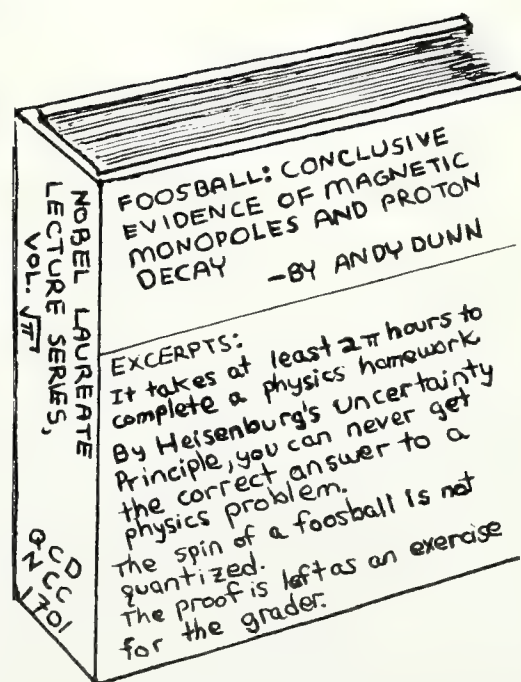 NOBEL LAUREATE
LECTURE SERIES,
VOL. √π
QCD
NCC
1701
FOOSBALL: CONCLUSIVE
EVIDENCE OF MAGNETIC
MONOPOLES AND PROTON
DECAY -BY ANDY DUNN
EXCERPTS:
It takes at least 2π hours to
complete a physics homework
By Heisenburg's Uncertainty
Principle, you can never get
the correct answer to a
physics problem.
The spin of a foosball is not
quantized.
The proof is left as an exercise
for the grader.